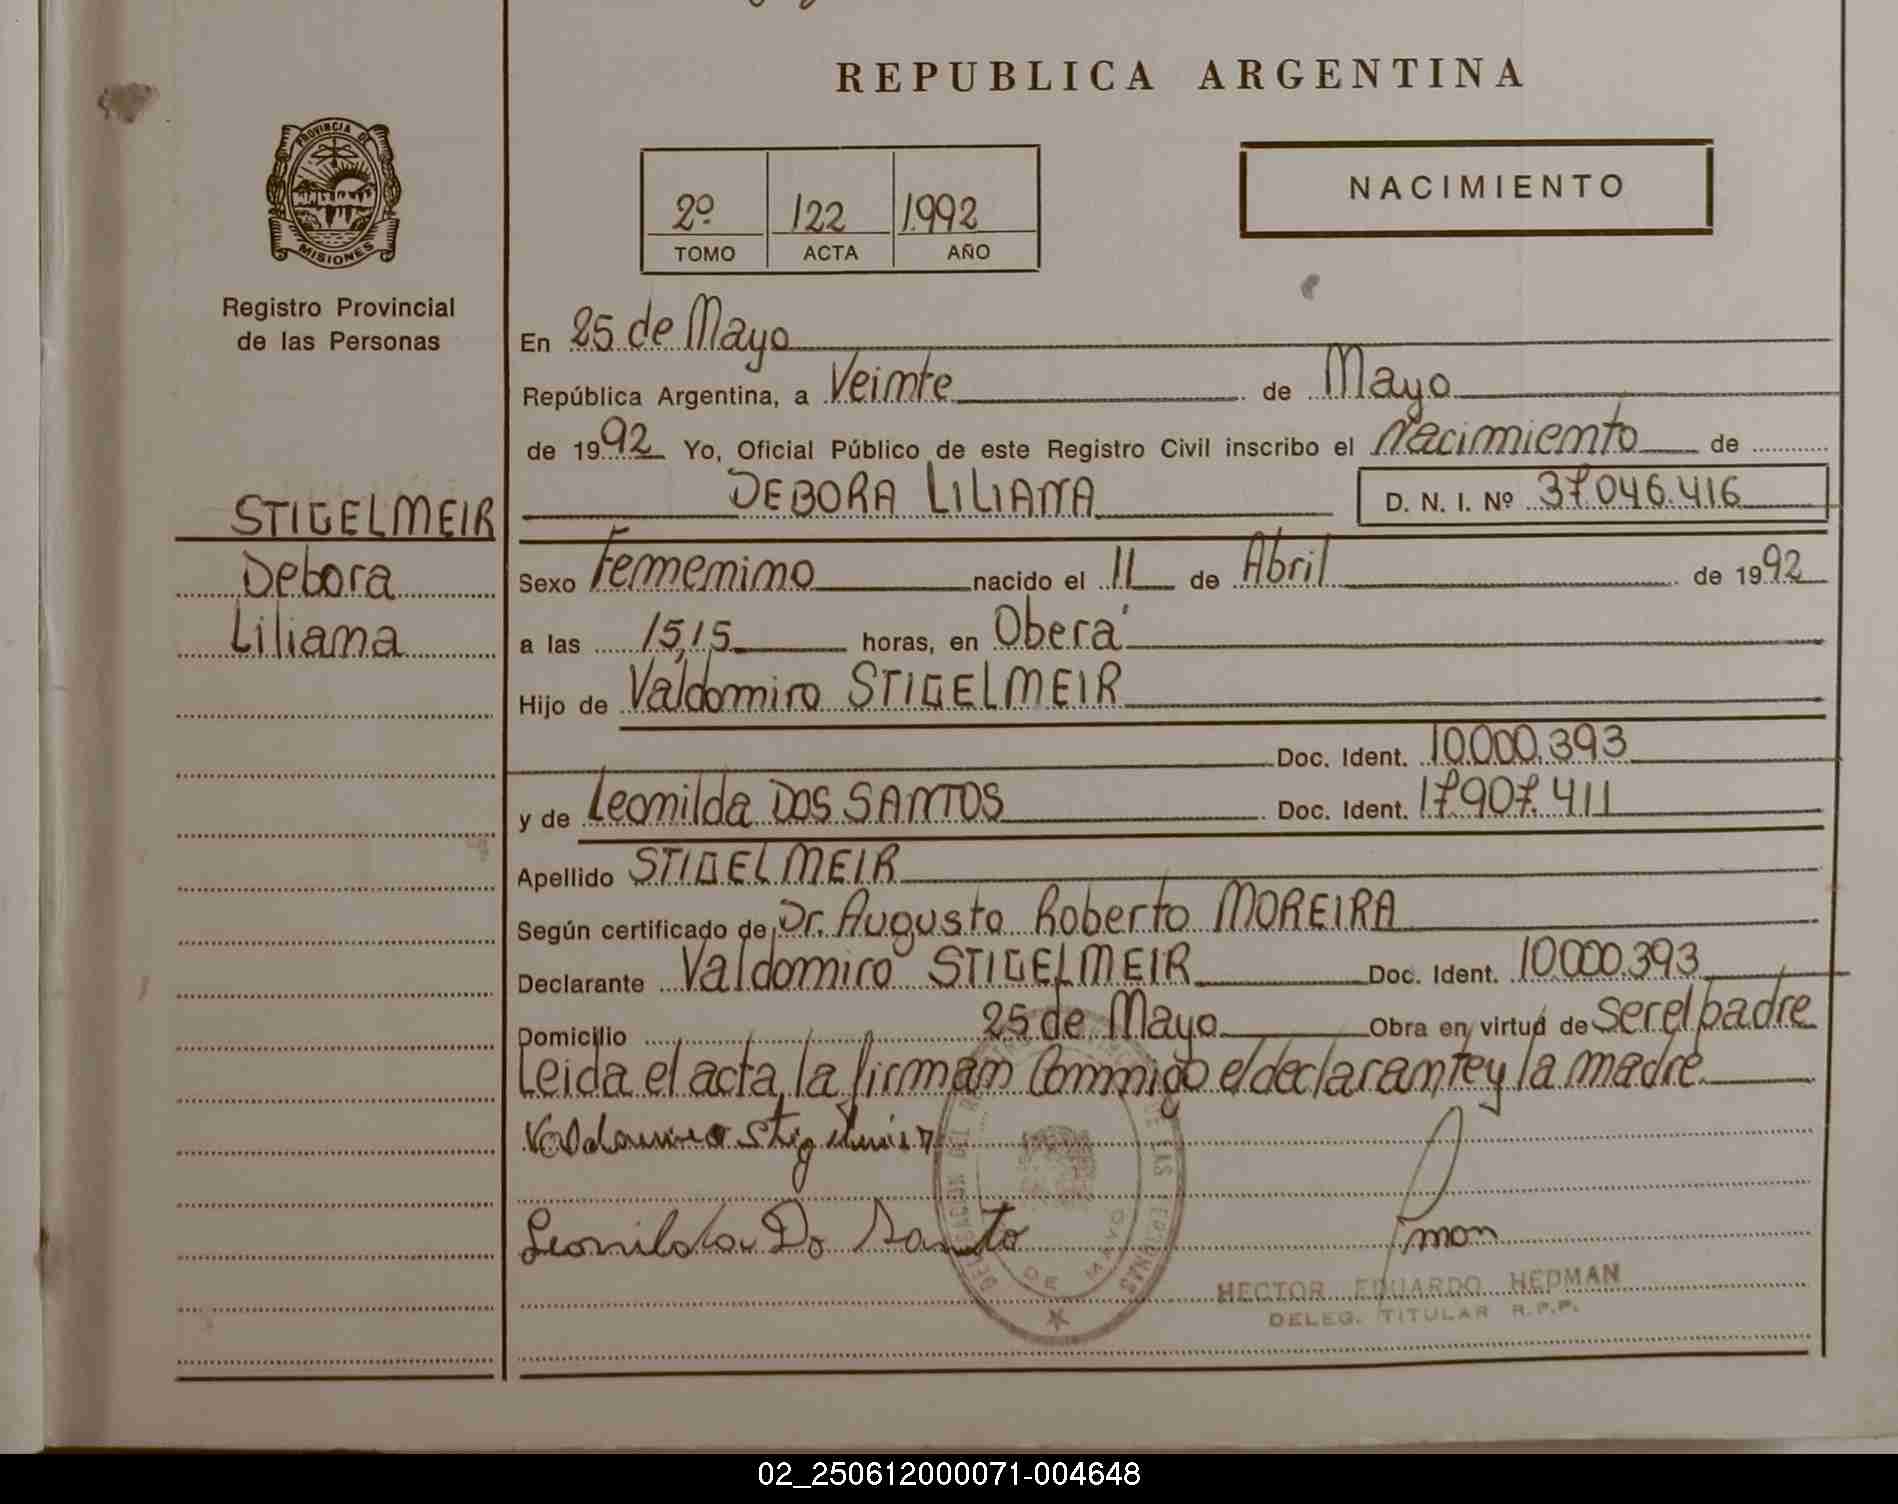 REPUBLICA ARGENTINA
PROVINCIA DE
MISIONES
Registro Provincial
de las Personas
2º 122 1992
TOMO ACTA AÑO
NACIMIENTO
En 25 de Mayo
República Argentina, a Veinte de Mayo
de 1992 Yo, Oficial Público de este Registro Civil inscribo el Nacimiento de
DEBORA LILIANA D. N. I. Nº 37.046.416
STIGELMEIR
Debora
Liliana
Sexo Femenino nacido el 11 de Abril de 1992
a las 15,15 horas, en Oberá
Hijo de Valdomiro STIGELMEIR
Doc. Ident. 10.000.393
y de Leonilda DOS SANTOS Doc. Ident. 17.907.411
Apellido STIGELMEIR
Según certificado de Dr. Augusto Roberto MOREIRA
Declarante Valdomiro STIGELMEIR Doc. Ident. 10.000.393
Domicilio 25 de Mayo Obra en virtud de ser el padre
Leida el acta, la firman Conmigo el declarante y la madre
Valdomiro Stigelmeir
Leonilda Do Santo
HECTOR EDUARDO HEDMAN
DELEG. TITULAR R.P.P.
DE MAYO
02_250612000071-004648